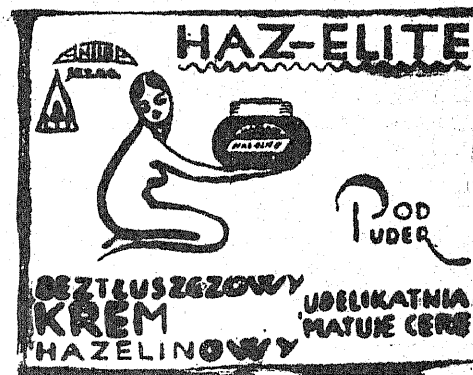 HAZ-ELITE
POD
PUDER
BEZTŁUSZCZOWY
KREM
HAZELINOWY
UDELIKATNIA
MATUJE CERĘ